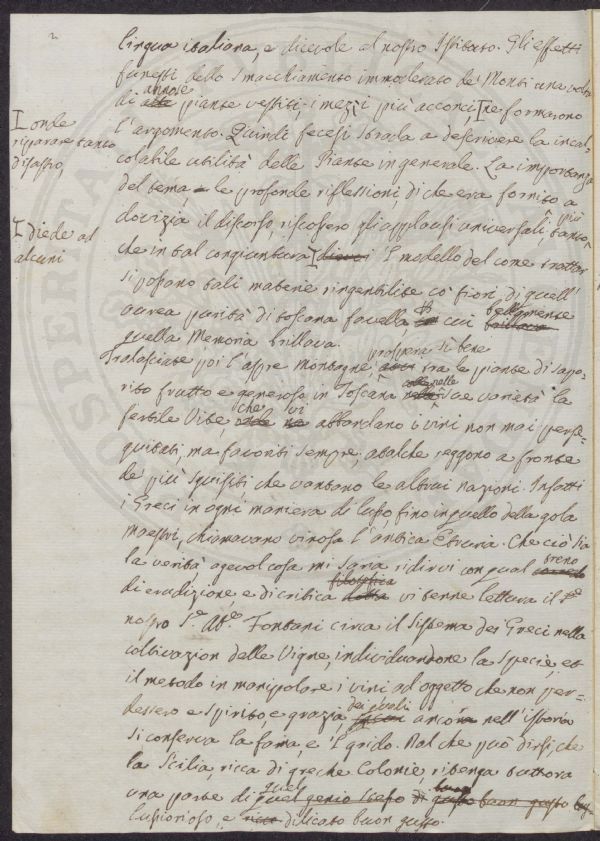 2
lingua italiana, e dicevole al nostro Istituto. Gli effetti
funesti dello smacchiamento immoderato de' Monti una volta
di annose piante vestiti, i mezzi più acconci, ne formarono
I onde
riparare tanto
disastro,
l'argomento. Quindi fecesi strada a descrivere la incal=
colabile utilità delle Piante in generale. La importanza
del tema, le profonde riflessioni, di che era fornito a
dovizia il discorso, riscossero gli applausi universali, tanto più
I diede ad
alcuni
che in tal congiuntura I dieci I modello del come trattar
si possano tali materie ringentilite co' fiori di quell'
aurea purità di toscana favella di cui bellamente brillava
quella Memoria brillava.
Tralasciate poi l'aspre montagne, prospera sì bene tra le piante di sapo=
rito frutto e generoso in Toscana colle nelle sue varietà la
fertile Vite, che vi abbondano i vini non mai perse=
guitati, ma favoriti sempre, a talchè reggono a fronte
de' più squisiti che vantano le altrui nazioni. Infatti
i Greci in ogni maniera di lusso, fino in quello della gola
maestri, chiamavano vinosa l'antica Etruria. Che ciò sia
la verità, agevol cosa mi saria ridirvi con qual treno corredo
di erudizione, e di critica filologica dotta vi tenne lettura il
nostro Sr. Abe. Fontani circa il Sistema dei Greci nella
coltivazion delle Vigne, individuandone la specie, ed
il metodo in manipolare i vini ad oggetto che non per=
dessero e spirito e grazia, dei quali ancora nell'istoria
si conserva la fama, e 'l grido. Dal che può dirsi che
la Sicilia, ricca di greche Colonie, ritenga tuttora
una parte di quel quel genio stesso di buon gusto
lussurioso, e ricco dilicato buon gusto.